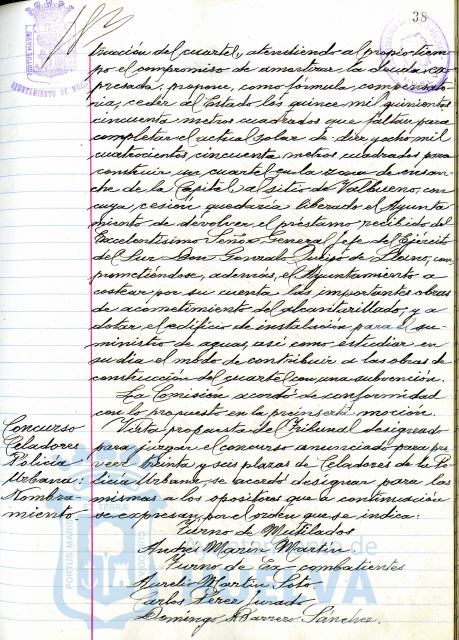 38
AYUNTAMIENTO DE HUELVA
trucción del cuartel, atendiendo al propio tiem-
po el compromiso de amortizar la deuda ex-
presada, propone, como fórmula compensato-
ria, ceder al Estado los quince mil quinientos
cincuenta metros cuadrados que faltan para
completar el actual solar de diez y ocho mil
cuatrocientos, cincuenta metros cuadrados para
construir un cuartel en la zona de ensan-
che de la Capital al sitio de Valbueno, con
cuya, cesión quedaría liberado el Ayunta-
miento de devolver el préstamo recibido del
Excelentísimo Señor General Jefe del Ejército
del Sur Don Gonzalo Queipo de Llano, com-
prometiéndose, además, el Ayuntamiento a
costear por su cuenta las importantes obras
de acometimiento del alcantarillado, y a
dotar el edificio de instalación para el su-
ministro de aguas, así como estudiar en
su día el modo de contribuir a las obras de
construcción del cuartel con una subvención.
La Comisión acordó de conformidad
con lo propuesto en la preinserta moción.
Concurso
Celadores
Policia
Urbana:
Nombra-
miento-
Vista propuesta de Tribunal designado
para juzgar el concurso anunciado para pro-
veer treinta y seis plazas de Celadores de la Po-
licia Urbana, se acordó designar para las
mismas a los opositores que a continuación
se expresan, por el orden que se indica:
Turno de Mutilados
Andrés Marín Martín
Turno de Ex-combatientes
Aurelio Martín Soto
Carlos Pérez Jurado
Domingo Barrera Sánchez
Ayuntamiento de
HUELVA